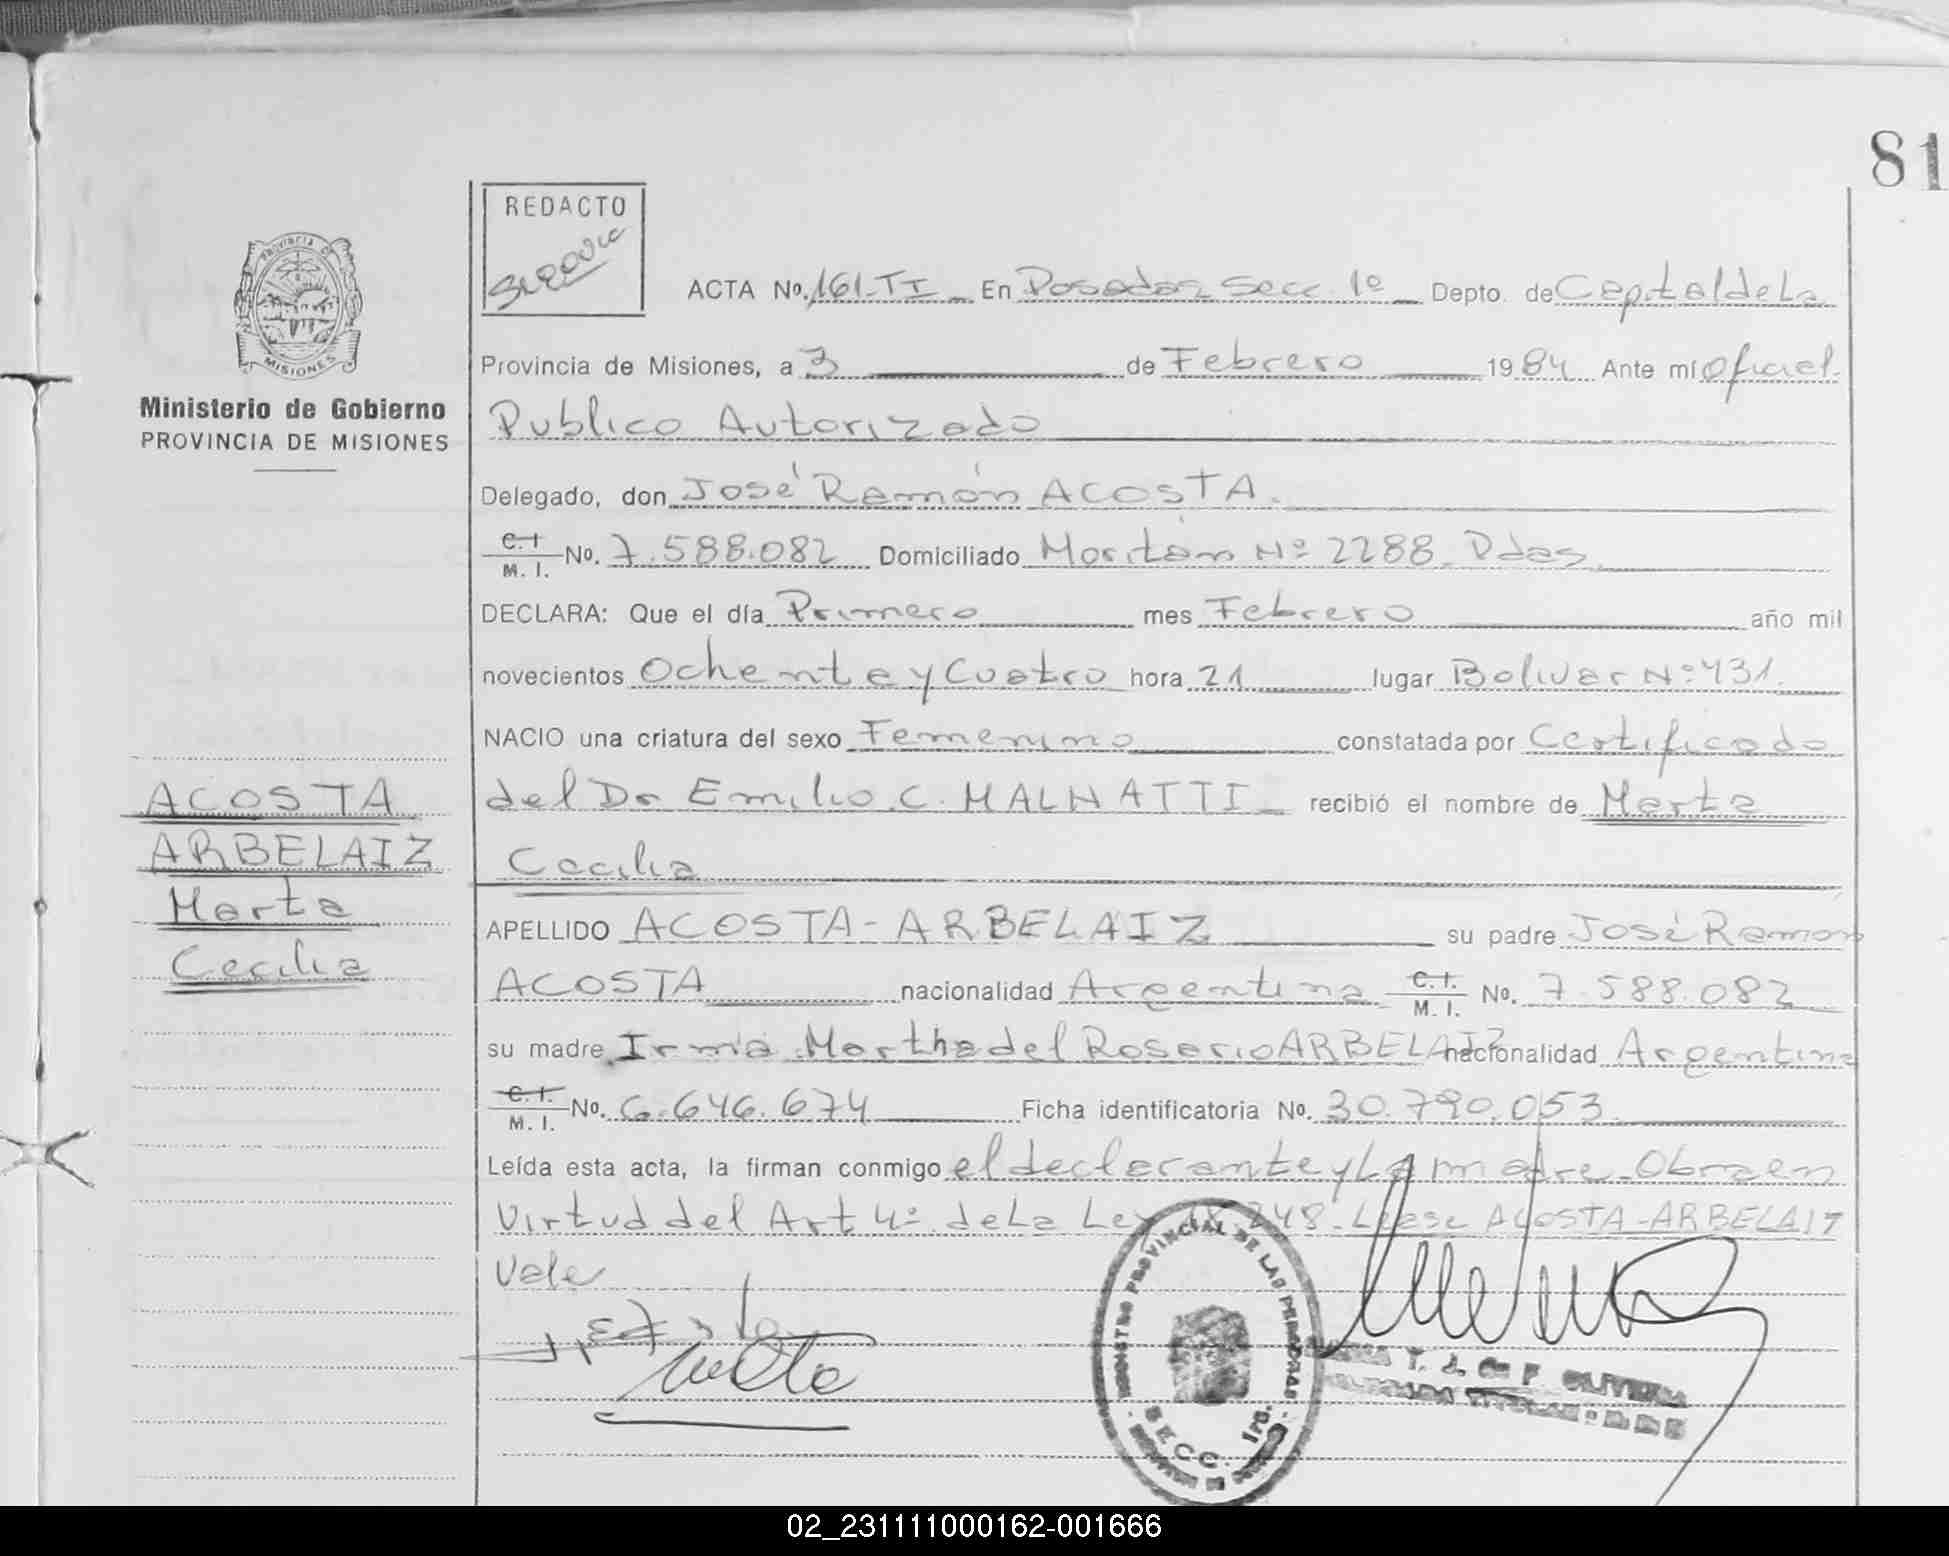 81
REDACTO
PROVINCIA DE
MISIONES
Ministerio de Gobierno
PROVINCIA DE MISIONES
ACTA No. 161-TI En Posadas Secc. 1º Depto. de Capital de La
Provincia de Misiones, a 3 de Febrero 1984 Ante mí Oficial
Publico Autorizado
Delegado, don José Ramón ACOSTA.
C.I. M. I. No. 7.588.082 Domiciliado Moritán Nº 2288. Pdas
DECLARA: Que el día Primero mes Febrero año mil
novecientos Ochenta y Cuatro hora 21 lugar Bolivar Nº 431.
NACIO una criatura del sexo Femenino constatada por Certificado
del Dr Emilio C. MALNATTI recibió el nombre de Marta
Cecilia
ACOSTA
ARBELAIZ
Marta
Cecilia
APELLIDO ACOSTA-ARBELAIZ su padre José Ramon
ACOSTA nacionalidad Argentina C.I. M. I. No. 7.588.082
su madre Irma Martha del Rosario ARBELAIZ nacionalidad Argentina
C.I. M. I. No. 6.646.674 Ficha identificatoria No. 30.790.053
Leída esta acta, la firman conmigo el declarante y La madre. Obra en
Virtud del Art 4º de La Ley 18.248. Léase ACOSTA-ARBELAIZ
Vale
REGISTRO PROVINCIAL DE LAS PERSONAS
SECC. 1ra.
T. J. de F. OLIVEIRA
02_231111000162-001666